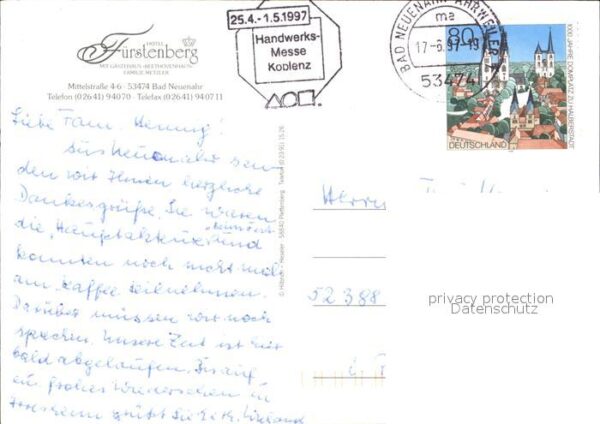 HOTEL
Fürstenberg
MIT GÄSTEHAUS »BEETHOVENHAUS«
FAMILIE METZLER
Mittelstraße 4-6 · 53474 Bad Neuenahr
Telefon (0 26 41) 9 40 70 · Telefax (0 26 41) 94 07 11
25.4. - 1.5.1997
Handwerks-
Messe
Koblenz
BAD NEUENAHR-AHRWEILER
ma
17-6.97-19
53474
80
DEUTSCHLAND
1000 JAHRE DOMPLATZ ZU HALBERSTADT
Liebe Fam.
Aus Neuenahr sen-
den wir Ihnen herzliche
Dankesgrüße. Sie waren
die und
konnten noch nicht mal
am Kaffee teilnehmen.
Darüber müssen wir noch
sprechen. Unsere Zeit ist hier
bald abgelaufen. Bis auf
ein frohes Wiedersehen in
grüßt Sie
Herrn
52388
privacy protection
Datenschutz